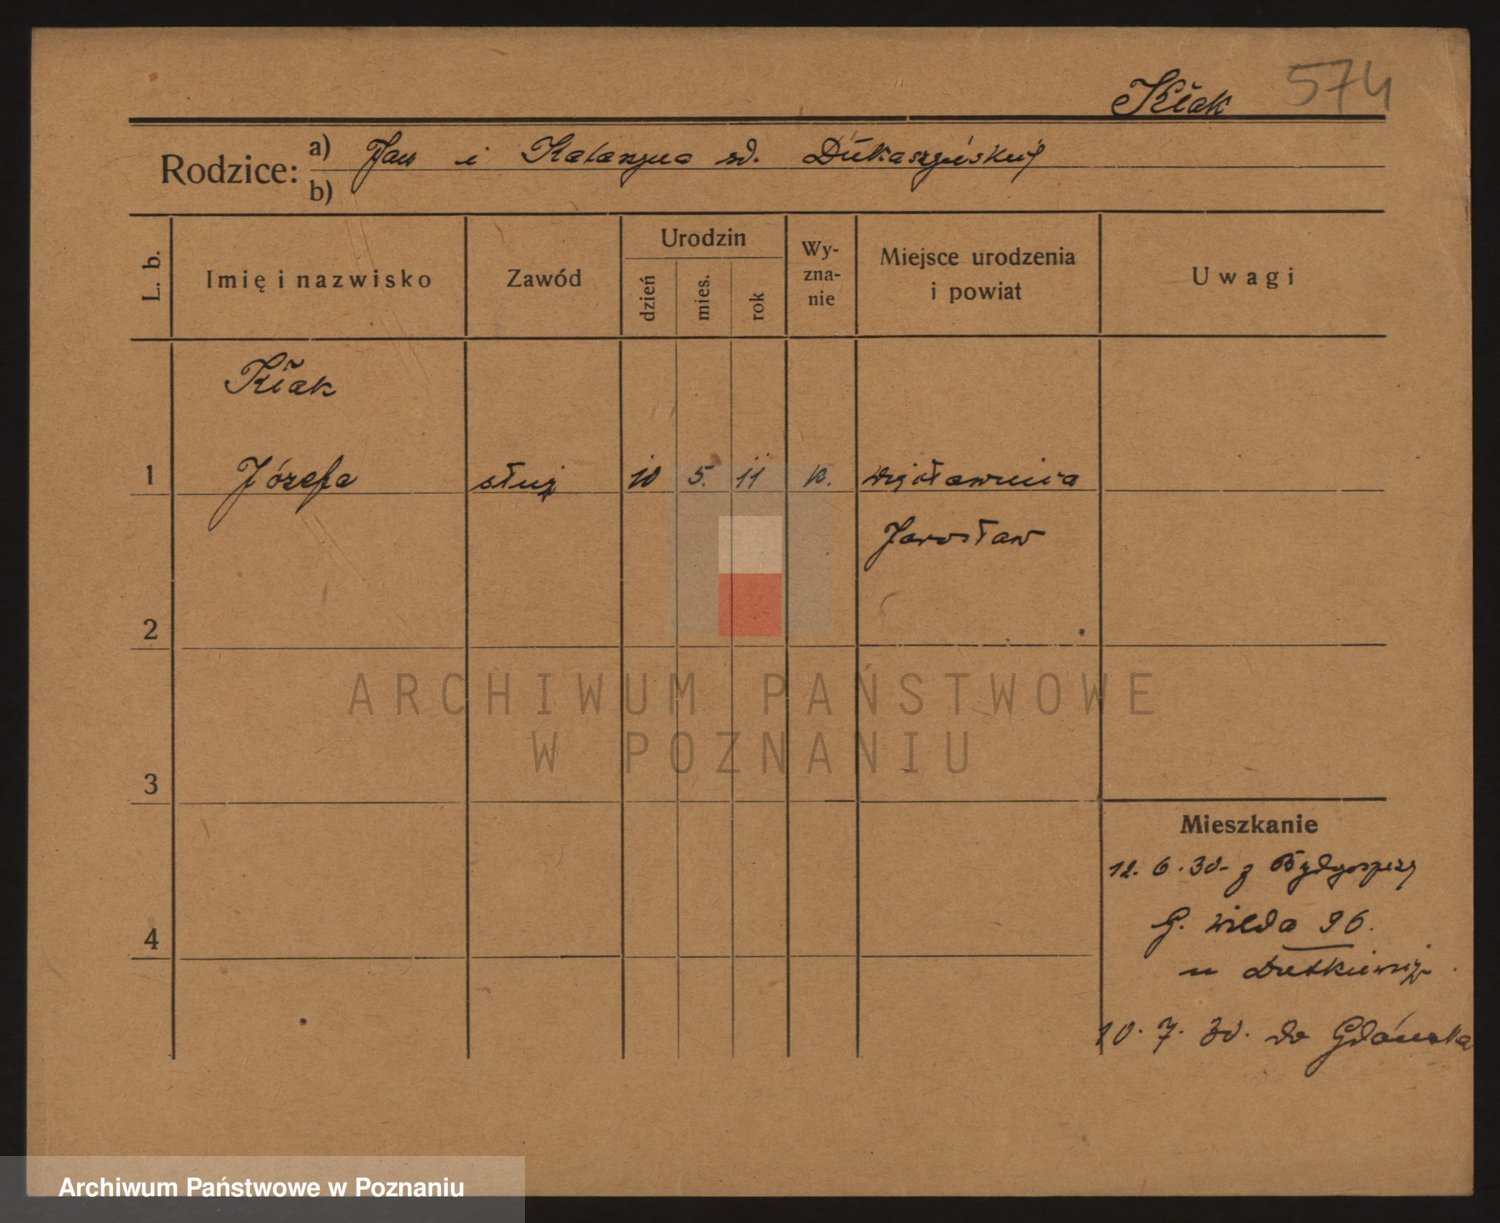 Kłak 574
Rodzice: a) Jan i Katarzyna zd.
b)
L. b. Imię i nazwisko Zawód Urodzin dzień mies. rok Wy-zna-nie Miejsce urodzenia i powiat Uwagi
Kłak
1 Józefa służ 10 5. 11 k.
Jarosław
2
ARCHIWUM PAŃSTWOWE
W POZNANIU
3
Mieszkanie
12. 6. 30. z Bydgoszczy
4 G. Wilda 96.
u Dutkiewicz
10. 7. 30. do Gdańska
Archiwum Państwowe w Poznaniu